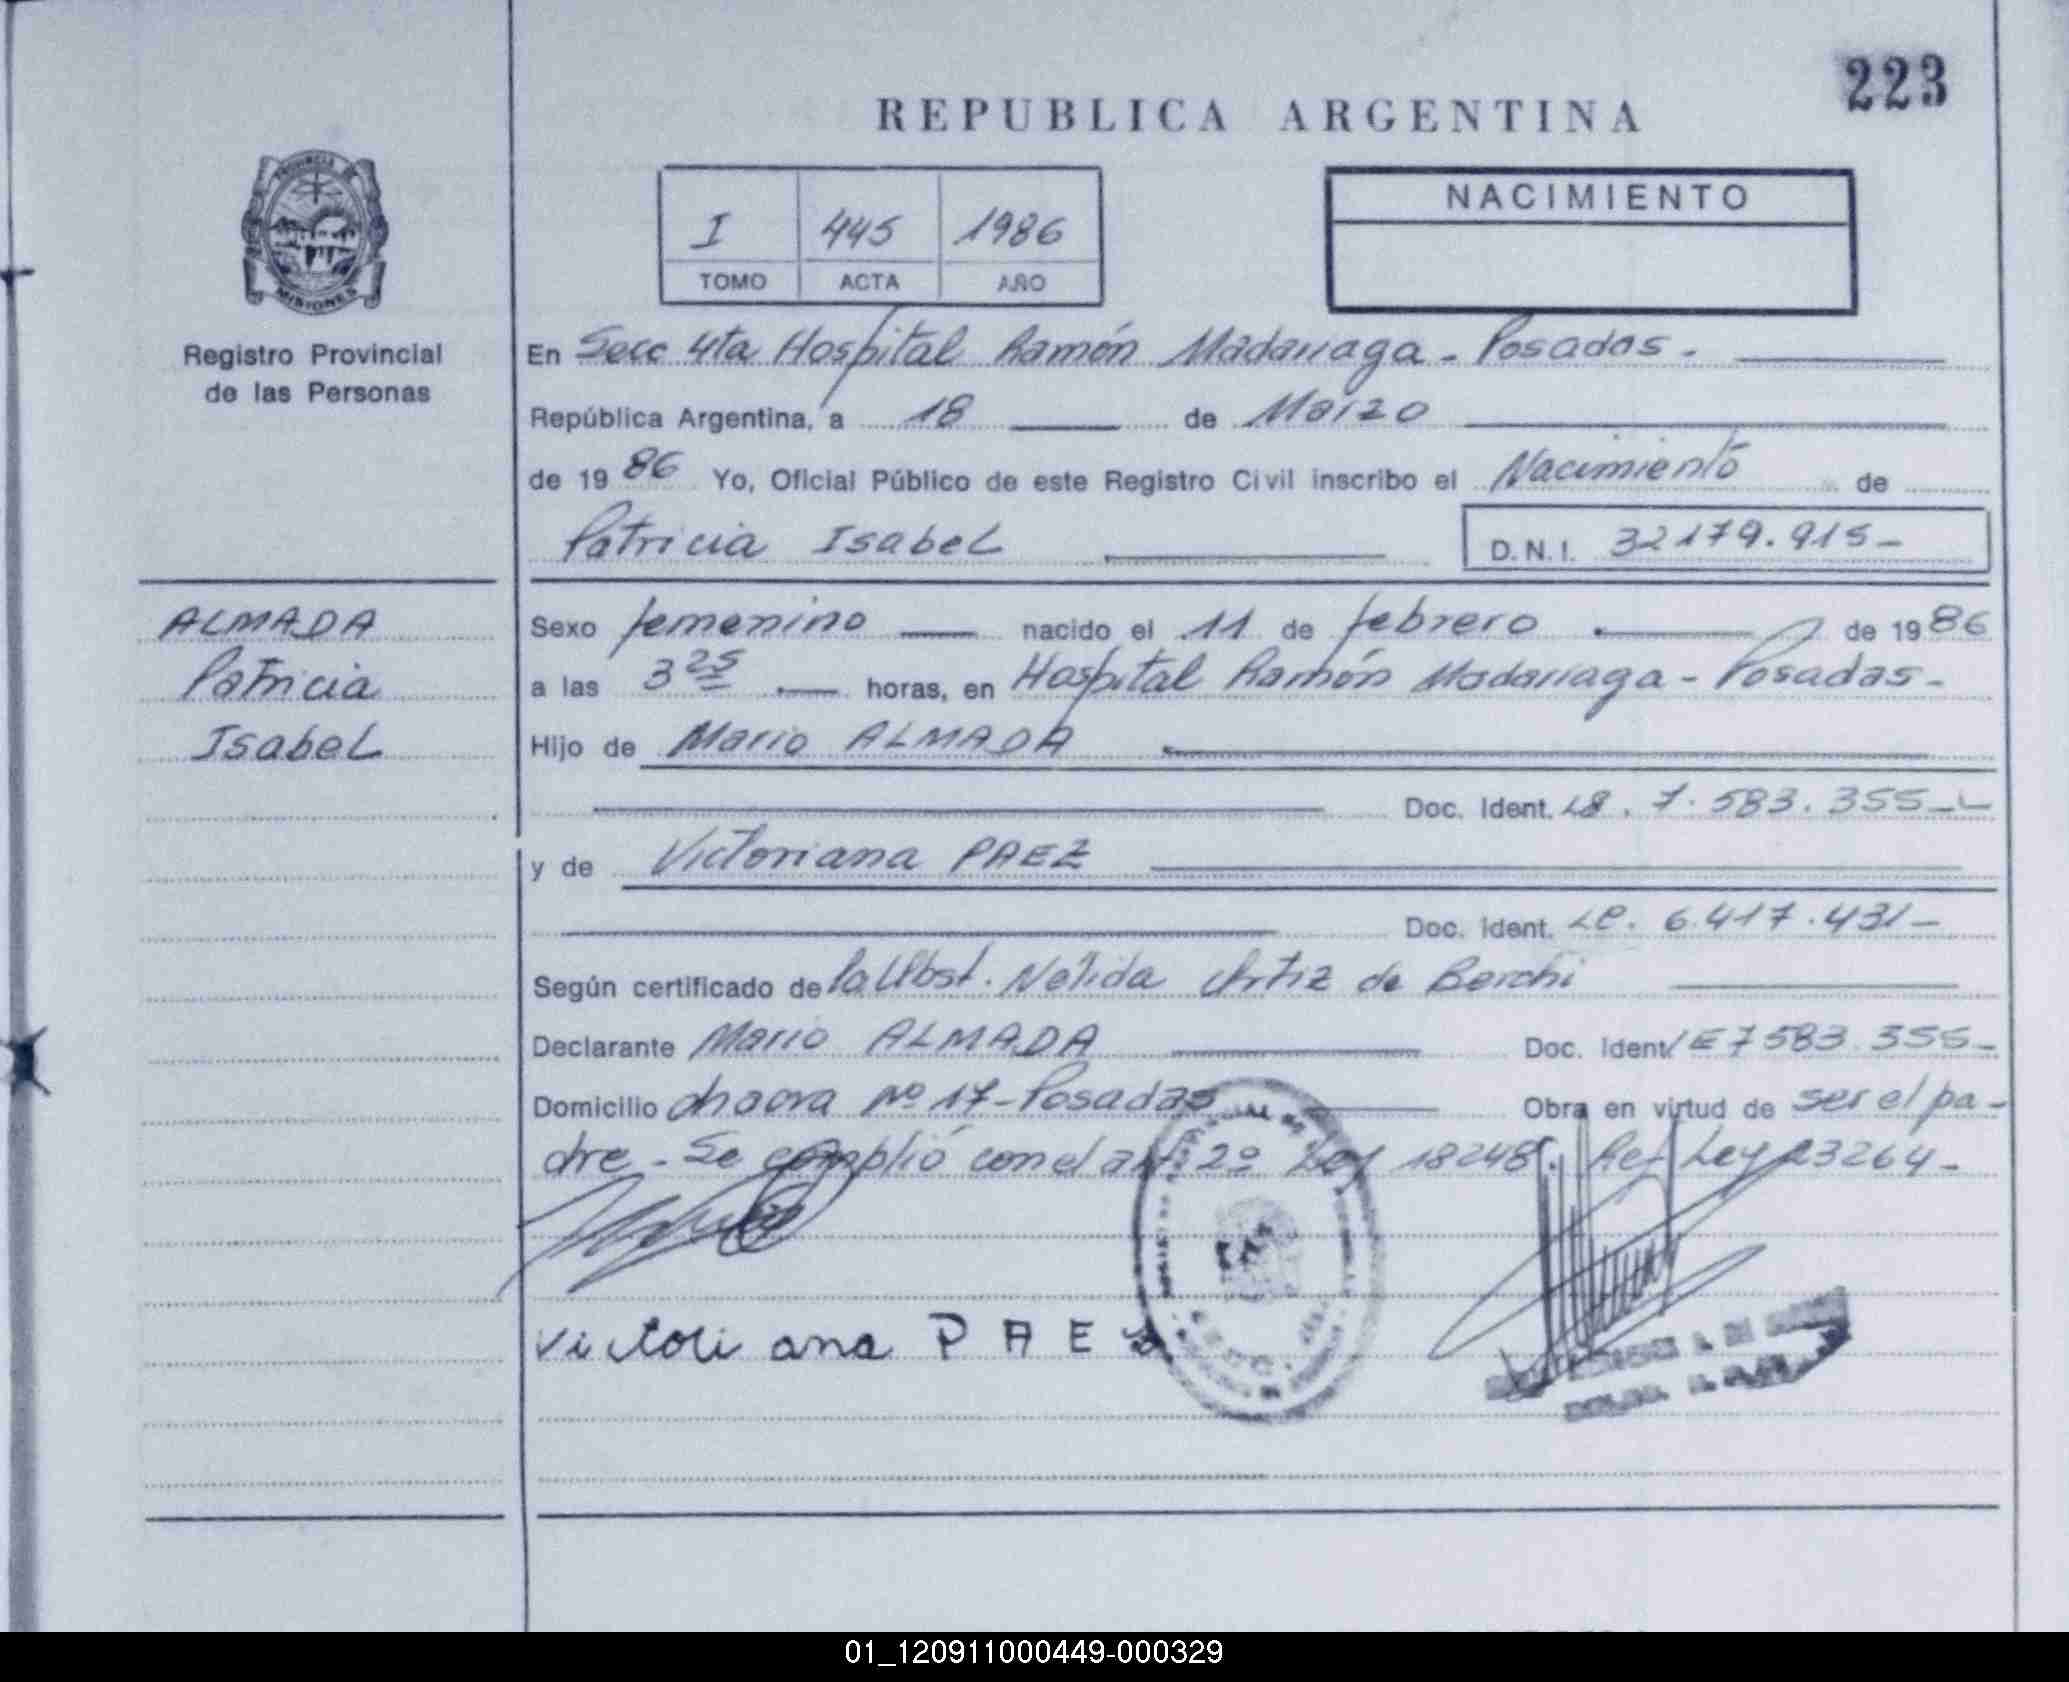 223
REPUBLICA ARGENTINA
PROVINCIA DE
MISIONES
Registro Provincial
de las Personas
I 445 1986
TOMO ACTA AÑO
NACIMIENTO
En Secc 4ta Hospital Ramón Madariaga - Posadas -
República Argentina, a 18 de Marzo
de 1986 Yo, Oficial Público de este Registro Civil inscribo el Nacimiento de
Patricia Isabel D.N.I. 32179.915-
ALMADA
Patricia
Isabel
Sexo femenino nacido el 11 de febrero de 1986
a las 3 25 horas, en Hospital Ramón Madariaga - Posadas -
Hijo de Mario ALMADA
Doc. Ident. 7.583.355-
y de Victoriana PAEZ
Doc. Ident. LC. 6.417.431-
Según certificado de la Obst. Nélida Ortiz de Berchi
Declarante Mario ALMADA Doc. Ident LE 7583.355-
Domicilio chacra Nº 17 - Posadas Obra en virtud de ser el pa-
dre - Se cumplió con el art 2º Ley 18248. Ref Ley 23264-
Victoriana PAEZ
01_120911000449-000329